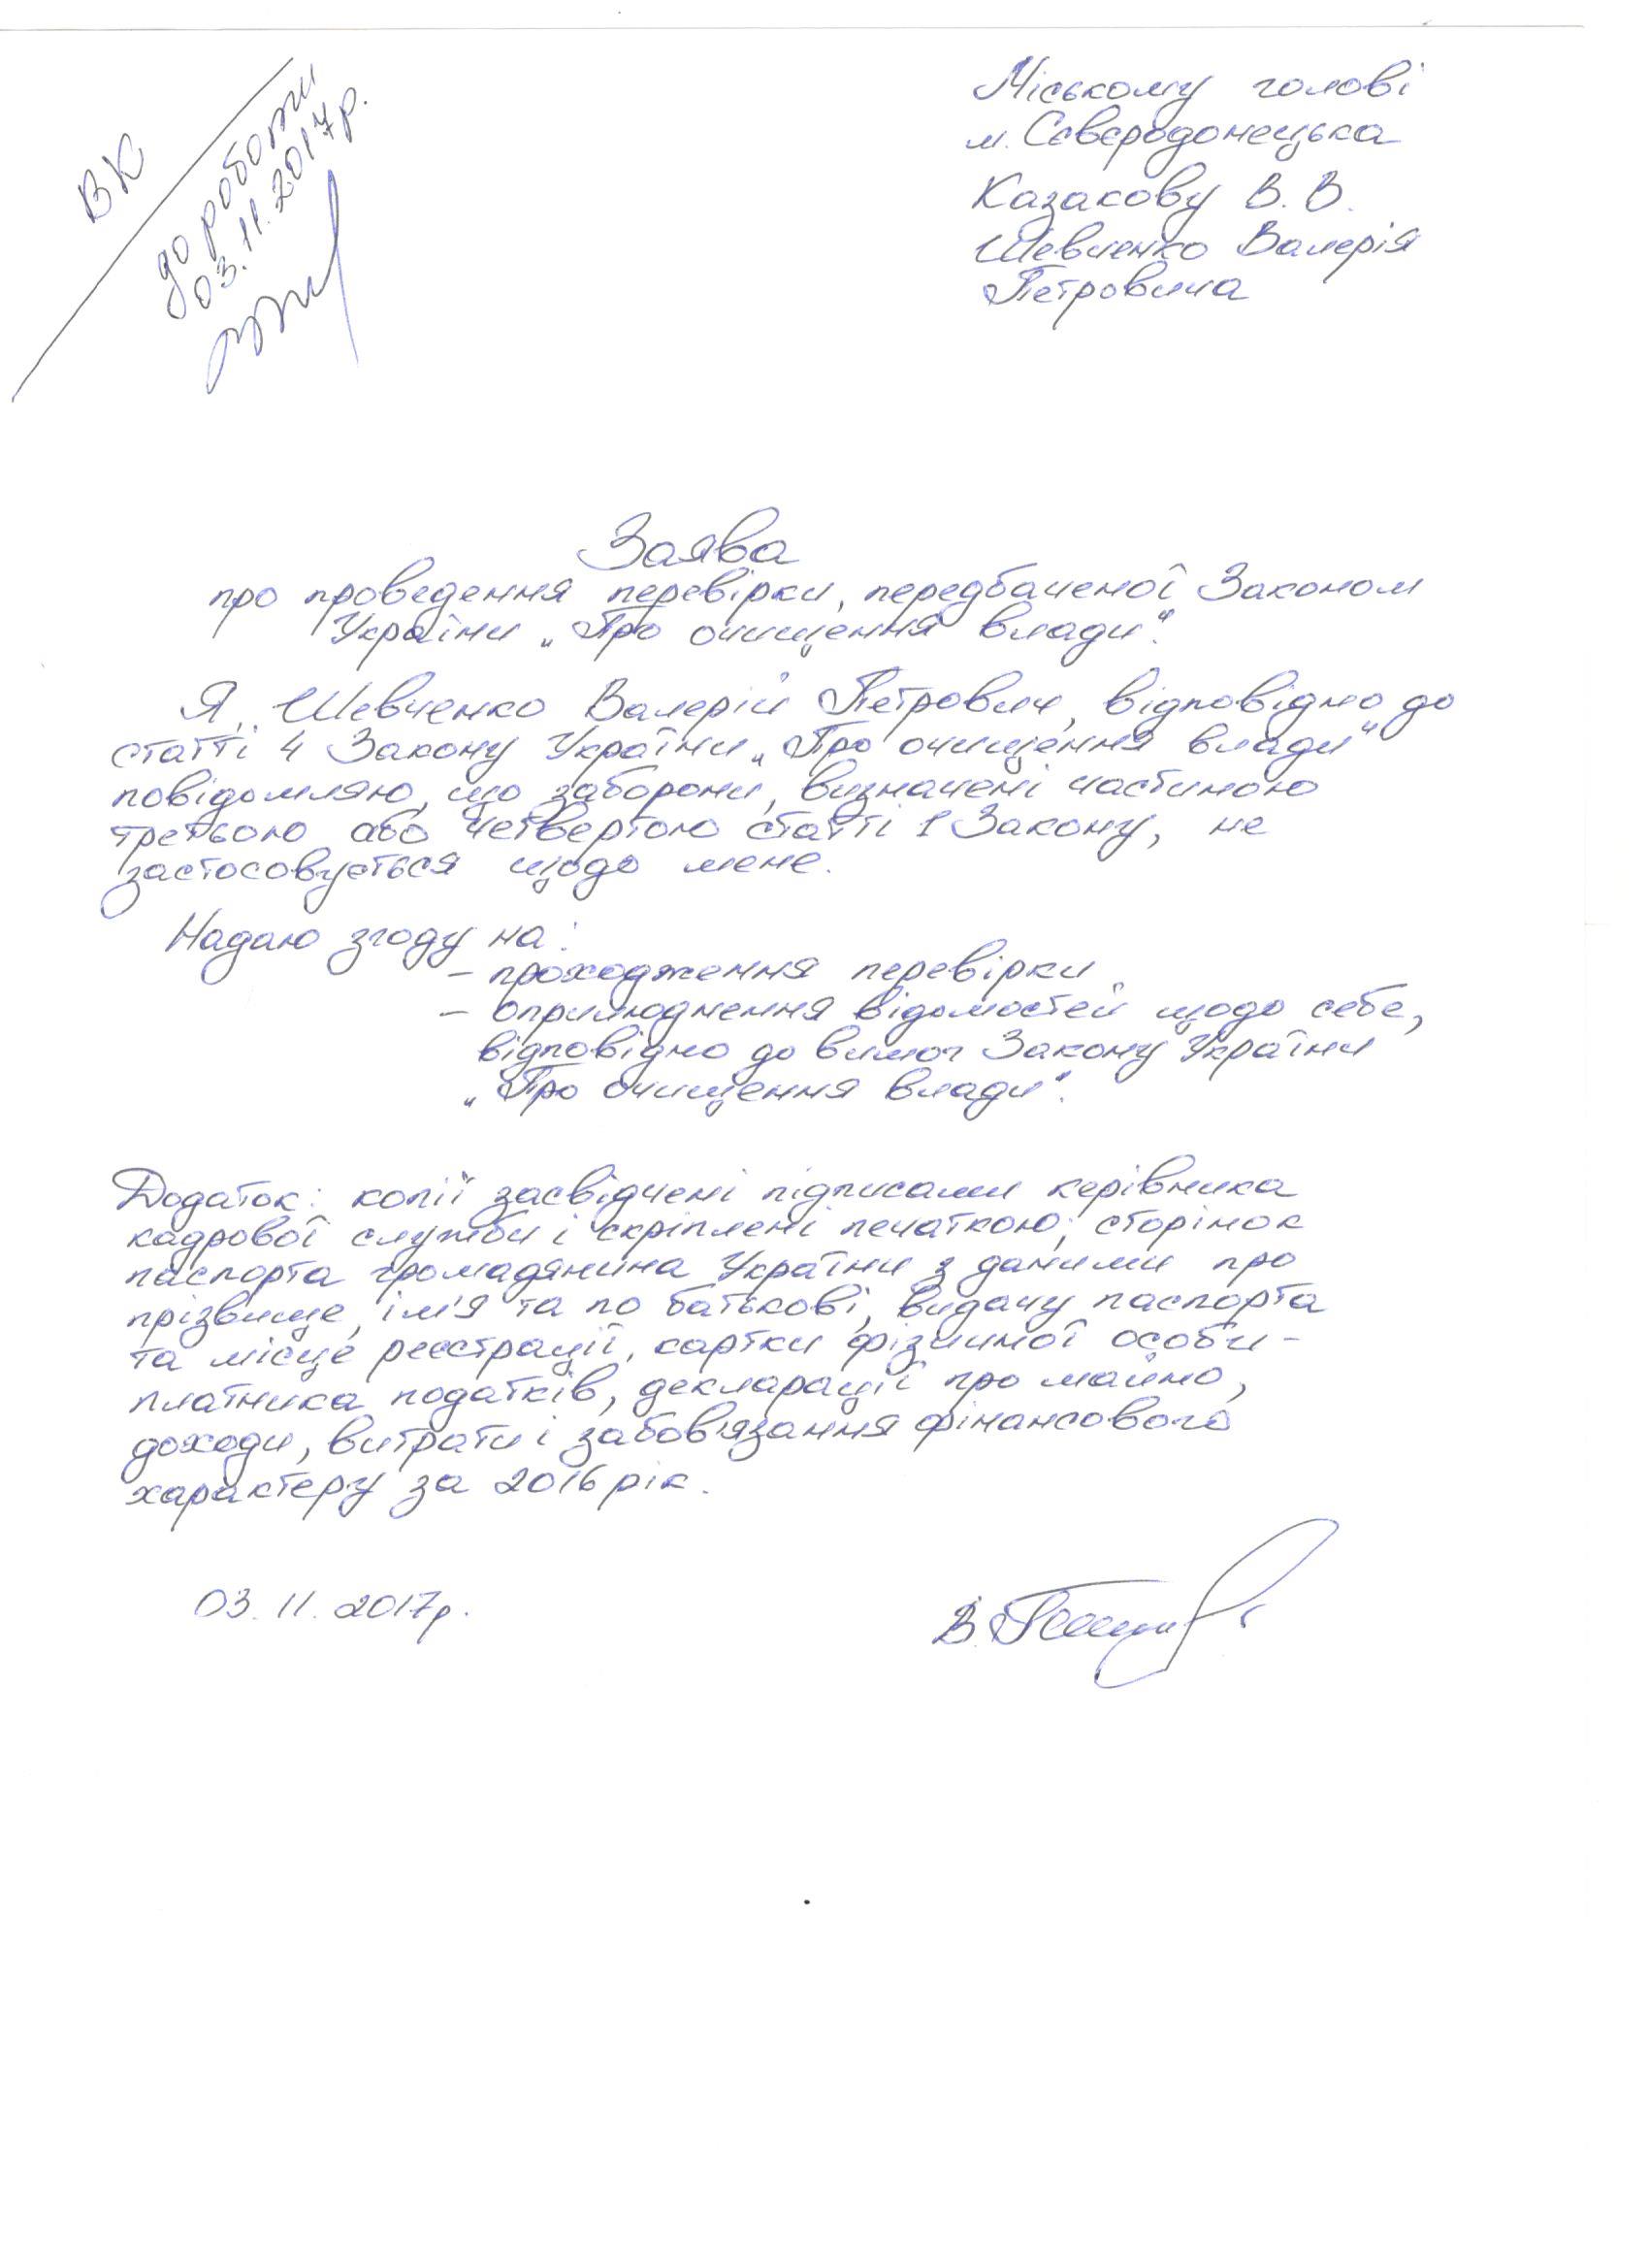 ВК
до роботи
03.11.2017р.
Міському голові
м. Сєвєродонецька
Казакову В. В.
Шевченко Валерія
Петровича
Заява
про проведення перевірки, передбаченої Законом
України „Про очищення влади".
Я, Шевченко Валерій Петрович, відповідно до
статті 4 Закону України „Про очищення влади"
повідомляю, що заборони, визначені частиною
третьою або четвертою статті 1 Закону, не
застосовується щодо мене.
Надаю згоду на:
- проходження перевірки
- оприлюднення відомостей щодо себе,
відповідно до вимог Закону України
„Про очищення влади".
Додаток: копії засвідчені підписами керівника
кадрової служби і скріплені печаткою; сторінок
паспорта громадянина України з даними про
прізвище, ім'я та по батькові, видачу паспорта
та місце реєстрації, картки фізичної особи-
платника податків, декларації про майно,
доходи, витрати і забов'язання фінансового
характеру за 2016 рік.
03.11.2017р.